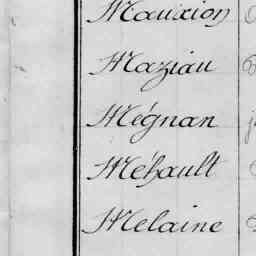 Mauxion
Maziau
Mégnan
Méhault
Melaine